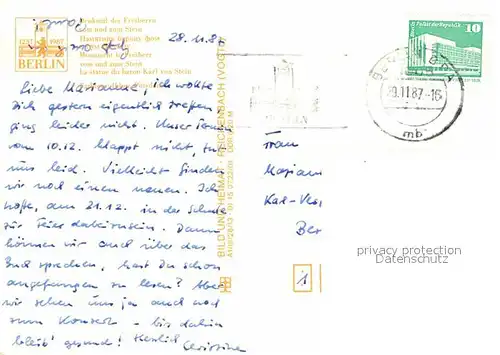 Denkmal des Freiherrn
von und zum Stein
1237 1987
BERLIN
Monument
von und zum Stein
La statue du baron Karl von Stein
28.11.87
Liebe Marianne, ich wollte
Dich gestern eigentlich treffen
ging leider nicht. Unser Termin
vom 10.12. klappt nicht, tut
uns leid. Vielleicht finden
wir noch einen neuen. Ich
hoffe, am 21.12. in der Schule
zur Feier dabeizusein. Dann
können wir auch über das
Buch sprechen, hast Du schon
angefangen zu lesen? Aber
wir sehen uns ja auch noch
zum Konzert - bis dahin
bleib' gesund! Herzlich
Christine
BILD UND HEIMAT REICHENBACH (VOGTL)
BERLIN
Palast der Republik
10
DDR
29.11.87-16
mb
Frau
Mariann
Karl-
Ber
1
privacy protection
Datenschutz